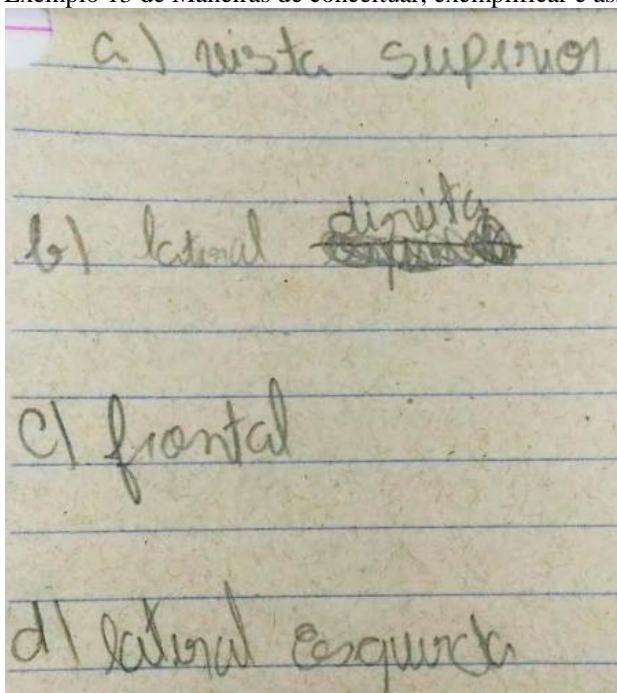 Exemplo 13 de Maneiras de conceituar, exemplificar e as
a) vista superior
direita
b) lateral
c) frontal
d) lateral esquerda